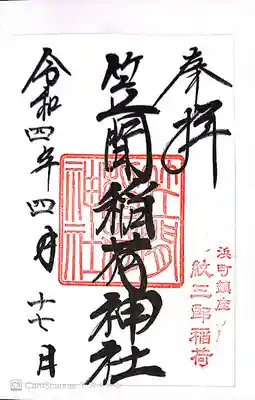 奉拝
浜町鎮座
紋三郎稲荷
笠間稲荷神社
令和四年四月十七日
CamScanner